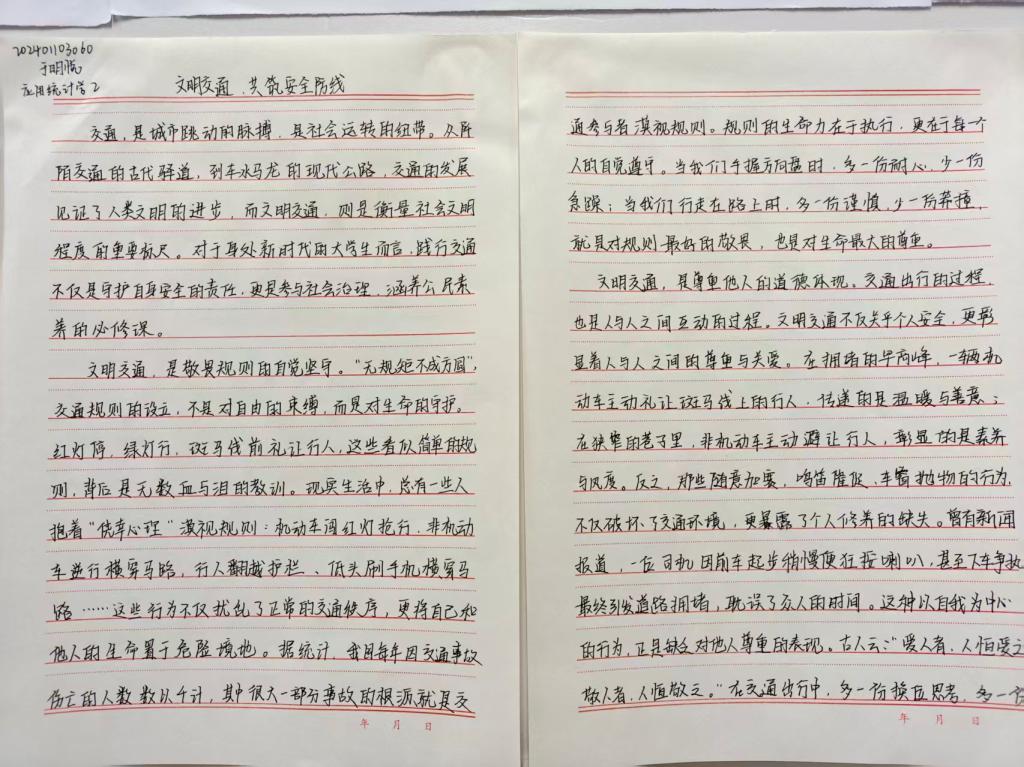 202401103060
于明悦
应用统计学2
文明交通,共筑安全防线
交通,是城市跳动的脉搏,是社会运转的纽带。从阡
陌交通的古代驿道,到车水马龙的现代公路,交通的发展
见证了人类文明的进步,而文明交通,则是衡量社会文明
程度的重要标尺。对于身处新时代的大学生而言,践行交通
不仅是守护自身安全的责任,更是参与社会治理,涵养公民素
养的必修课。
文明交通,是敬畏规则的自觉坚守。“无规矩不成方圆”,
交通规则的设立,不是对自由的束缚,而是对生命的守护。
红灯停,绿灯行,斑马线前礼让行人,这些看似简单的规
则,背后是无数血与泪的教训。现实生活中,总有一些人
抱着“侥幸心理”漠视规则:机动车闯红灯抢行,非机动
车逆行横穿马路,行人翻越护栏、低头刷手机横穿马
路……这些行为不仅扰乱了正常的交通秩序,更将自己和
他人的生命置于危险境地。据统计,我国每年因交通事故
伤亡的人数数以千计,其中很大一部分事故的根源就是交
年 月 日
通参与者漠视规则。规则的生命力在于执行,更在于每一个
人的自觉遵守。当我们手握方向盘时,多一份耐心,少一份
急躁;当我们行走在路上时,多一份谨慎,少一份莽撞,
就是对规则最好的敬畏,也是对生命最大的尊重。
文明交通,是尊重他人的道德体现。交通出行的过程,
也是人与人之间互动的过程。文明交通不仅关乎个人安全,更彰
显着人与人之间的尊重与关爱。在拥堵的早高峰,一辆机
动车主动礼让斑马线上的行人,传递的是温暖与善意;
在狭窄的巷子里,非机动车主动避让行人,彰显的是素养
与风度。反之,那些随意加塞,鸣笛催促、车窗抛物的行为,
不仅破坏了交通环境,更暴露了个人修养的缺失。曾有新闻
报道,一位司机因前车起步稍慢便狂按喇叭,甚至下车争执
最终引发道路拥堵,耽误了众人的时间。这种以自我为中心
的行为,正是缺乏对他人尊重的表现。古人云:“爱人者,人恒爱之
敬人者,人恒敬之。”在交通出行中,多一份换位思考,多一份
年 月 日